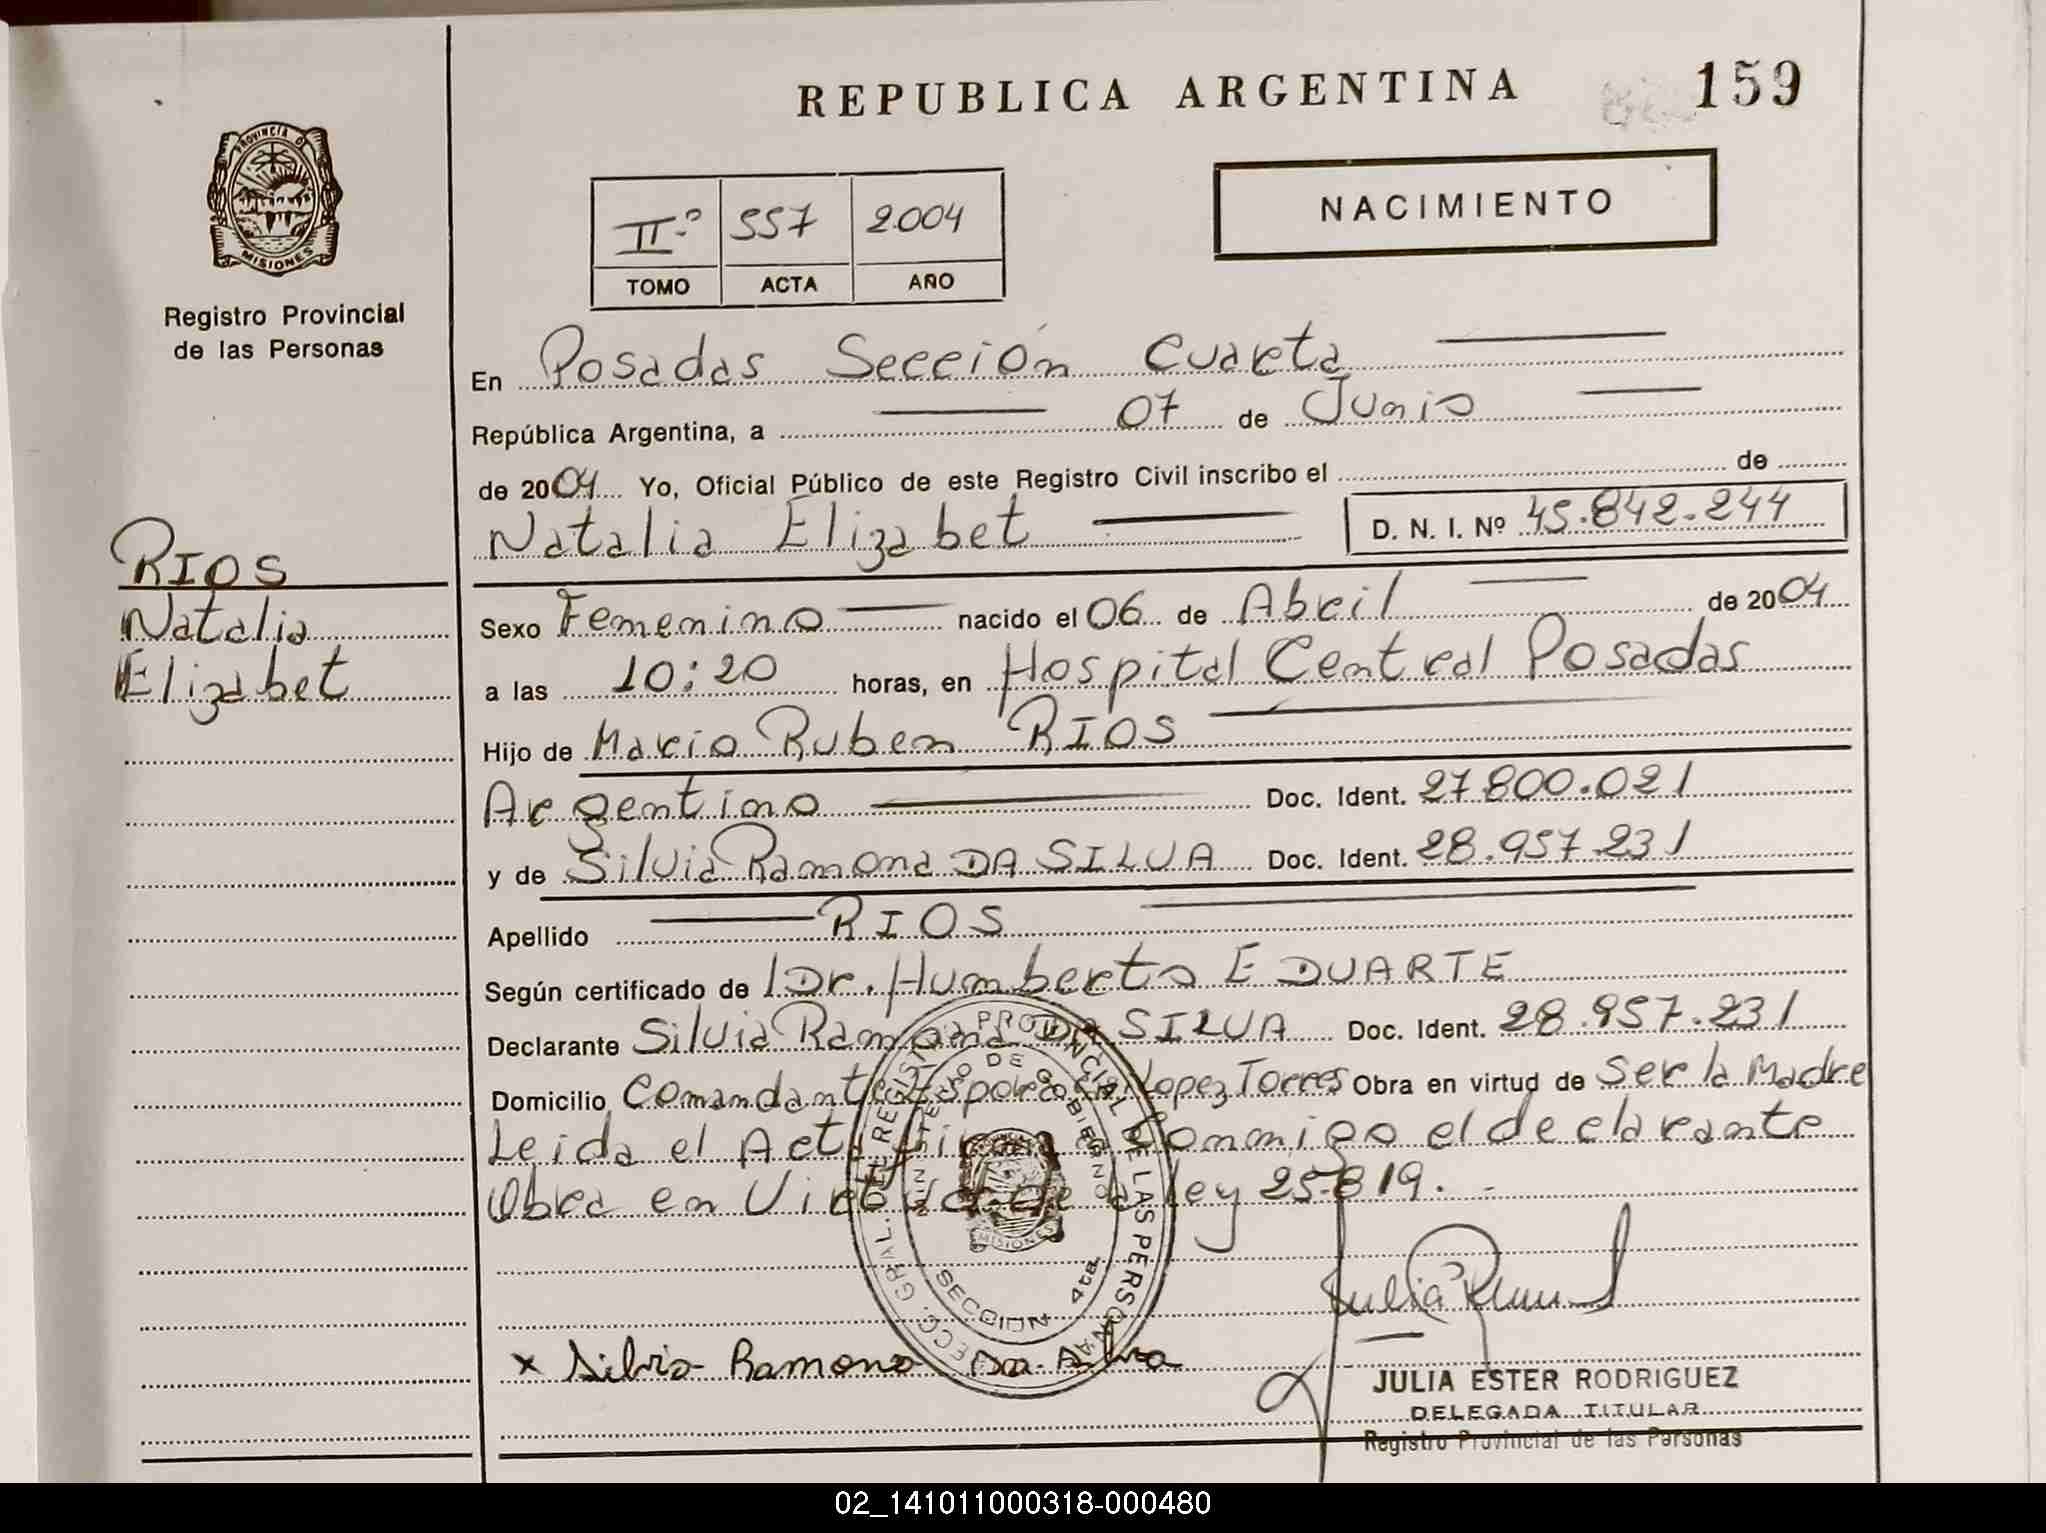 REPUBLICA ARGENTINA
159
PROVINCIA D
MISIONES
Registro Provincial
de las Personas
NACIMIENTO
IIº 557 2004
TOMO ACTA AÑO
En Posadas Sección Cuarta
República Argentina, a 07 de Junio
de 2004 Yo, Oficial Público de este Registro Civil inscribo el de
Natalia Elizabet D. N. I. Nº 45.842.244
RIOS
Natalia
Elizabet
Sexo Femenino nacido el 06 de Abril de 2004
a las 10:20 horas, en Hospital Central Posadas
Hijo de Mario Ruben RIOS
Argentino Doc. Ident. 27.800.021
y de Silvia Ramona DA SILVA Doc. Ident. 28.957.231
Apellido RIOS
Según certificado de Dr. Humberto E DUARTE
Declarante Silvia Ramona DA SILVA Doc. Ident. 28.957.231
Domicilio Comandante Lopez Torres Obra en virtud de Ser la Madre
Leida el Acta Conmigo el declarante
Obra en Virtud de la ley 25.819.-
DIRECC. GRAL. DEL REGISTRO PROVINCIAL DE LAS PERSONAS
MINISTERIO DE GOBIERNO
MISIONES
SECCION 4ta.
x Silvia Ramona Da Silva
JULIA ESTER RODRIGUEZ
DELEGADA TITULAR
Registro Provincial de las Personas
02_141011000318-000480